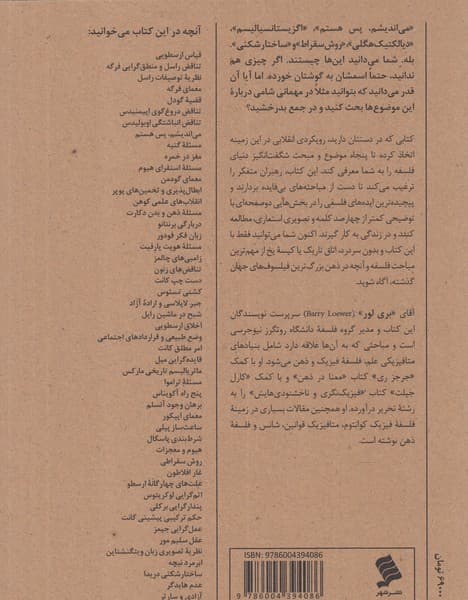 «می‌اندیشم، پس هستم»، «اگزیستانسیالیسم»،
«دیالکتیک هگلی»، «روش سقراط» و «ساختارشکنی».
بله. شما می‌دانید این‌ها چیستند. اگر چیزی هم
ندانید، حتماً اسمشان به گوشتان خورده. اما آیا آن
قدر می‌دانید که بتوانید مثلاً در مهمانی شامی دربارهٔ
این موضوع‌ها بحث کنید و در جمع بدرخشید؟
کتابی که در دستتان دارید، رویکردی انقلابی در این زمینه
اتخاذ کرده تا پنجاه موضوع و مبحث شگفت‌انگیز دنیای
فلسفه را به شما معرفی کند. این کتاب، رهبران متفکر را
ترغیب می‌کند تا دست از مباحثه‌های بی‌فایده بردارند و
پیچیده‌ترین ایده‌های فلسفی را در بخش‌هایی دوصفحه‌ای با
توضیحی کمتر از چهارصد کلمه و تصویری استعاری، مطالعه
کنند و در زندگی به کار گیرند. اکنون شما می‌توانید فقط با
این کتاب و بدون سردرد، اتاق تاریک یا کیسهٔ یخ از مهم‌ترین
مباحث فلسفه و آنچه در ذهن بزرگ‌ترین فیلسوف‌های جهان
گذشته، آگاه شوید.
آقای «بری لور» (Barry Loewer) سرپرست نویسندگان
این کتاب و مدیر گروه فلسفهٔ دانشگاه روتگرز نیوجرسی
است و مباحثی که به آن‌ها علاقه دارد شامل بنیادهای
متافیزیکی علم، فلسفهٔ فیزیک و ذهن می‌شود. او با کمک
«جرجز ری» کتاب «معنا در ذهن» و با کمک «کارل
جیلت» کتاب «فیزیک‌نگری و ناخشنودی‌هایش» را به
رشتهٔ تحریر درآورده. او همچنین مقالات بسیاری در زمینهٔ
فلسفهٔ فیزیک کوانتوم، متافیزیک قوانین، شانس و فلسفهٔ
ذهن نوشته است.
آنچه در این کتاب می‌خوانید:
قیاس ارسطویی
تناقض راسل و منطق‌گرایی فرگه
نظریهٔ توصیفات راسل
معمای فرگه
قضیهٔ گودل
تناقض دروغ‌گوی اپیمنیدس
تناقض انباشتگی اوبولیدس
می‌اندیشم، پس هستم
مسئلهٔ گتیه
مغز در خمره
مسئلهٔ استقرای هیوم
معمای گودمن
ابطال‌پذیری و تخمین‌های پوپر
انقلاب‌های علمی کوهن
مسئلهٔ ذهن و بدن دکارت
دربارگی برنتانو
زبان فکر فودور
مسئلهٔ هویت پارفیت
زامبی‌های چالمرز
تناقض‌های زنون
دست چپ کانت
کشتی تسئوس
جبر لاپلاسی و ارادهٔ آزاد
شبح در ماشین رایل
اخلاق ارسطویی
وضع طبیعی و قراردادهای اجتماعی
امر مطلق کانت
فایده‌گرایی میل
ماتریالیسم تاریخی مارکس
مسئلهٔ تراموا
پنج راه آکویناس
برهان وجود آنسلم
معمای اپیکور
ساعت‌ساز پیلی
شرط‌بندی پاسکال
هیوم و معجزات
روش سقراطی
غار افلاطون
علت‌های چهارگانهٔ ارسطو
اتم‌گرایی لوکریتوس
پندارگرایی برکلی
حکم ترکیبی پیشینی کانت
عمل‌گرایی جیمز
عقل سلیم مور
نظریهٔ تصویری زبان ویتگنشتاین
ابرمرد نیچه
ساختارشکنی دریدا
عدم هایدگر
آزادی و سارتر
ISBN: 9786004394086
9 786004 394086
نشر شهر
۶۹۰۰۰ تومان